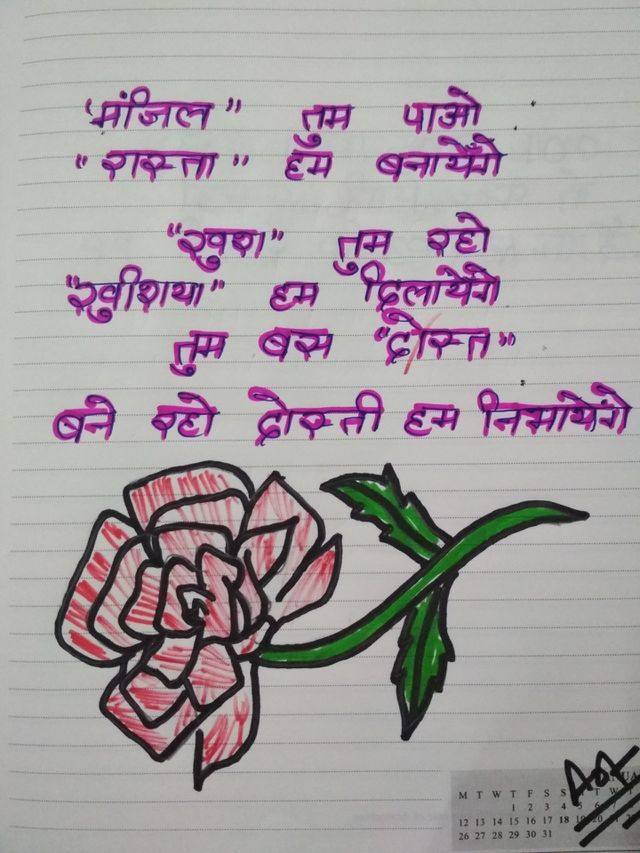 'मंजिल" तुम पाओ
"रास्ता" हम बनायेंगे
"खुश" तुम रहो
"खुीशया" हम दिलायेंगे
तुम बस "दोस्त"
बने रहो दोस्ती हम निभायेंगे
M T W T F S S T W
1 2 3 4 5 6 7
12 13 14 15 16 17 18 19 20
26 27 28 29 30 31